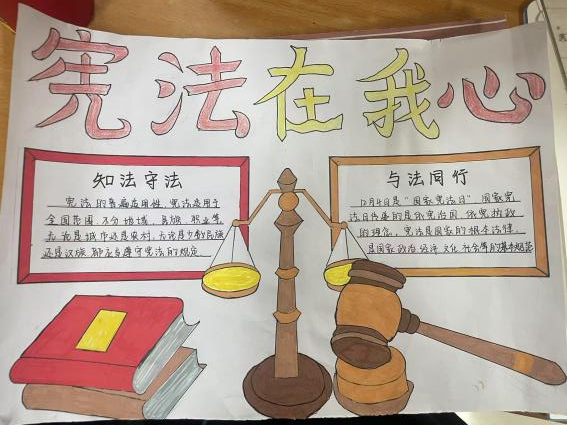 宪法在我心
知法守法
宪法的普遍适用性,宪法适用于
全国范围,不分地域、民族、职业等,
无论是城市还是农村,无论是少数民族
还是汉族,都应当遵守宪法的规定
与法同行
12月4日是"国家宪法日"国家宪
法日传递的是依宪治国,依宪执政
的理念,宪法是国家的根本法律,
是国家政治 经济 文化 社会等的基本规范